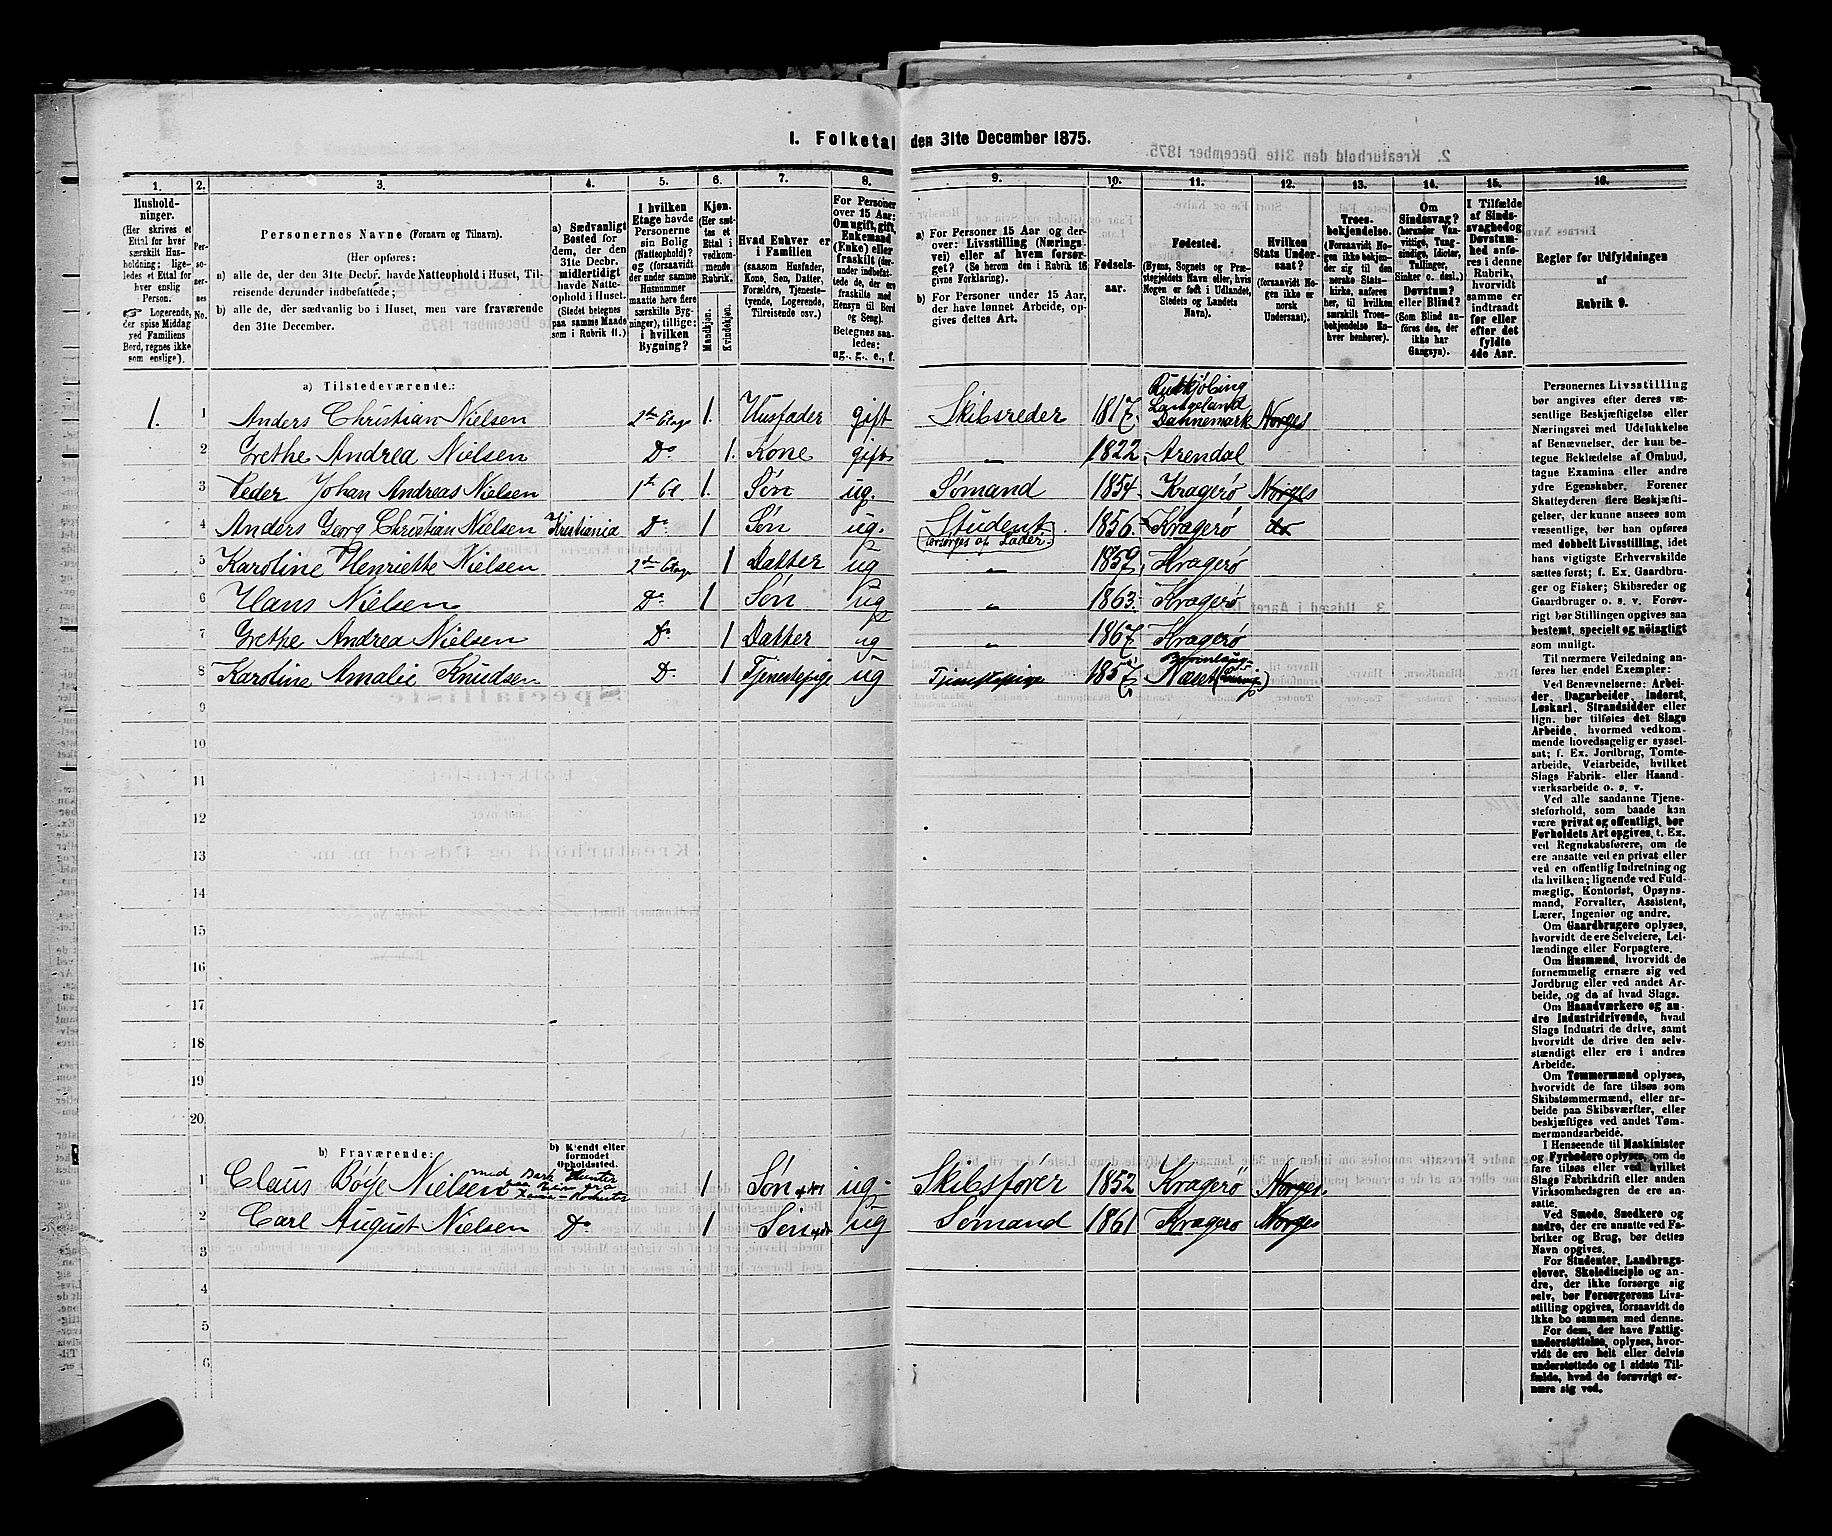 I. Folketal den 31te December 1875.
1. 2. 3. 4. 5. 6. 7. 8. 9. 10. 11. 12. 13. 14. 15. 16.
Hushold-
ninger.
(Her skrives et
Ettal for hver
særskilt Hus-
holdning; lige-
ledes et Ettal for
hver enslig
Person.
Logerende,
der spise Middag
ved Familiens
Bord, regnes ikke
som enslige).
Per-
so-
ner-
nes
No.
Personernes Navne (Fornavn og Tilnavn).
(Her opføres:
a) alle de, der den 31te Decbr. havde Natteophold i Huset, Til-
reisende derunder indbefattede;
b) alle de, der sædvanlig bo i Huset, men vare fraværende
den 31te December.
a) Sædvanligt
Bosted for
dem, der den
31te Decbr.
midlertidigt
havde Natte-
ophold i Huset.
(Stedet betegnes
paa samme Maade
som i Rubrik 11.)
I hvilken
Etage havde
Personerne
sin Bolig
(Natteophold)?
og (forsaavidt
der under samme
Husnummer
maatte høre flere
særskilte Byg-
ninger), tillige:
i hvilken
Bygning?
Kjøn.
(Her sæt-
tes et
Ettal i
vedkom-
mende
Rubrik.)
Mandkjøn.
Kvindekjøn.
Hvad Enhver er
i Familien
(saasom Husfader,
Kone, Søn, Datter,
Forældre, Tjeneste-
tyende, Logerende,
Tilreisende osv.)
For Personer
over 15 Aar:
Om ugift, gift,
Enkemand
(Enke) eller
fraskilt (der-
under indbefat-
tede de, der ere
fraskilte med
Hensyn til Bord
og Seng).
Betegnes saa-
ledes:
ug., g., e., f.
a) For Personer 15 Aar og der-
over: Livsstilling (Nærings-
vei) eller af hvem forsør-
get? (Se herom den i Rubrik 16
givne Forklaring).
b) For Personer under 15 Aar,
der have lønnet Arbeide, op-
gives dettes Art.
Fødsels-
aar.
Fødested.
(Byens, Sognets og Præ-
stegjeldets Navn eller, hvis
Nogen er født i Udlandet,
Stedets og Landets
Navn).
Hvilken
Stats Under-
saat?
(forsaavidt No-
gen ikke er
norsk
Undersaat).
Troes-
bekjendelse.
(Forsaavidt No-
gen ikke bekjen-
der sig til den
norske Stats-
kirke, anføres
her, til hvilken
særskilt Troes-
bekjendelse En-
hver henhører).
Om
Sindssvag?
(herunder Van-
vittige, Tung-
sindige, Idioter,
Tullinger,
Sinker o. desl.)
Døvstum?
eller Blind?
(Som Blind an-
føres den, der
ikke har
Gangsyn).
I Tilfælde
af Sinds-
svaghed og
Døvstum-
hed anfø-
res i denne
Rubrik,
hvorvidt
samme er
indtraadt
før eller
efter det
fyldte
4de Aar.
Regler for Udfyldningen
af
Rubrik 9.
a) Tilstedeværende:
1. 1 Anders Christian Nielsen 2den Etage 1. Husfader gift Skibsreder 1817. Rudkjøbing Langeland Dannemark Norges
2 Grethe Andrea Nielsen Do 1. Kone gift „ 1822 Arendal
3 Peder Johan Andreas Nielsen 1ste Et 1. Søn ug. Sømand 1854. Kragerø Norges
4 Anders Georg Christian Nielsen Kristiania Do 1 Søn ug. Student (forsørges af Fader.) 1856. Kragerø do
5 Karoline Henriette Nielsen 2den Etage 1 Datter ug „ 1859 Kragerø
6 Hans Nielsen Do 1 Søn ug „ 1863. Kragerø
7 Grethe Andrea Nielsen Do 1 Datter ug „ 1867 Kragerø
8 Karoline Amalie Knudsen Do 1 Tjenestepige ug Tjenestepige 1857 Næset
9
10
11
12
13
14
15
16
17
18
19
20
b) Fraværende:
b) Kjendt eller
formodet
Opholdssted.
1 Claus Bøye Nielsen med Bark Hunter paa Reise fra 1 Søn ug Skibsfører 1852 Kragerø Norges
2 Carl August Nielsen Do 1 Søn ug Sømand 1861 Kragerø Norges
3
4
5
6
Personernes Livsstilling
bør angives efter deres væ-
sentlige Beskjæftigelse eller
Næringsvei med Udelukkelse
af Benævnelser, der kun be-
tegne Beklædelse af Ombud,
tagne Examina eller andre
ydre Egenskaber. Forener
Skatteyderen flere Beskjæfti-
gelser, der kunne ansees som
væsentlige, bør han opføres
med dobbelt Livsstilling, idet
hans vigtigste Erhvervskilde
sættes først; f. Ex. Gaardbru-
ger og Fisker; Skibsreder og
Gaardbruger o. s. v. Forøv-
rigt bør Stillingen opgives saa
bestemt, specielt og nøiagtigt
som muligt.
Til nærmere Veiledning an-
føres her endel Exempler:
Ved Benævnelserne: Arbei-
der, Dagarbeider, Inderst,
Løskarl, Strandsidder eller
lign. bør tilføies det Slags
Arbeide, hvormed vedkom-
mende hovedsagelig er syssel-
sat; f. Ex. Jordbrug, Tomte-
arbeide, Veiarbeide, hvilket
Slags Fabrik- eller Haand-
værksarbeide o. s. v.
Ved alle saadanne Tjene-
steforhold, som baade kan
være privat og offentligt, bør
Forholdets Art opgives, t. Ex.
ved Regnskabsførere, om de
ere ansatte ved en privat eller
ved en offentlig Indretning og
da hvilken; lignende ved Fuld-
mægtig, Kontorist, Opsyns-
mand, Forvalter, Assistent,
Lærer, Ingeniør og andre.
Om Gaardbrugere oplyses,
hvorvidt de ere Selveiere, Lei-
lændinge eller Forpagtere.
Om Husmænd, hvorvidt de
fornemmelig ernære sig ved
Jordbrug eller ved andet Ar-
beide, og da af hvad Slags.
Om Haandværkere og an-
dre Industridrivende, hvad
Slags Industri de drive, samt
hvorvidt de drive den selv-
stændigt eller ere i andres
Arbeide.
Om Tømmermænd oplyses,
hvorvidt de fare tilsøs som
Skibstømmermænd, eller ar-
beide paa Skibsværfter, eller
beskjæftiges ved andet Tøm-
mermandsarbeide.
I Henseende til Maskinister
og Fyrbødere oplyses, om de
fare tilsøs eller ved hvilket
Slags Fabrikdrift eller anden
Virksomhedsgren de ere an-
satte.
Ved Smede, Snedkere og
andre, der ere ansatte ved Fa-
briker og Brug, bør dettes
Navn opgives.
For Studenter, Landbrugs-
elever, Skoledisciple og an-
dre, der ikke forsørge sig
selv, bør Forsørgerens Livs-
stilling opgives, forsaavidt de
ikke bo sammen med denne.
For dem, der have Fattig-
understøttelse, oplyses, hvor-
vidt de ere helt eller delvis
understøttede og i sidste Til-
fælde, hvad de forøvrigt er-
nære sig ved.